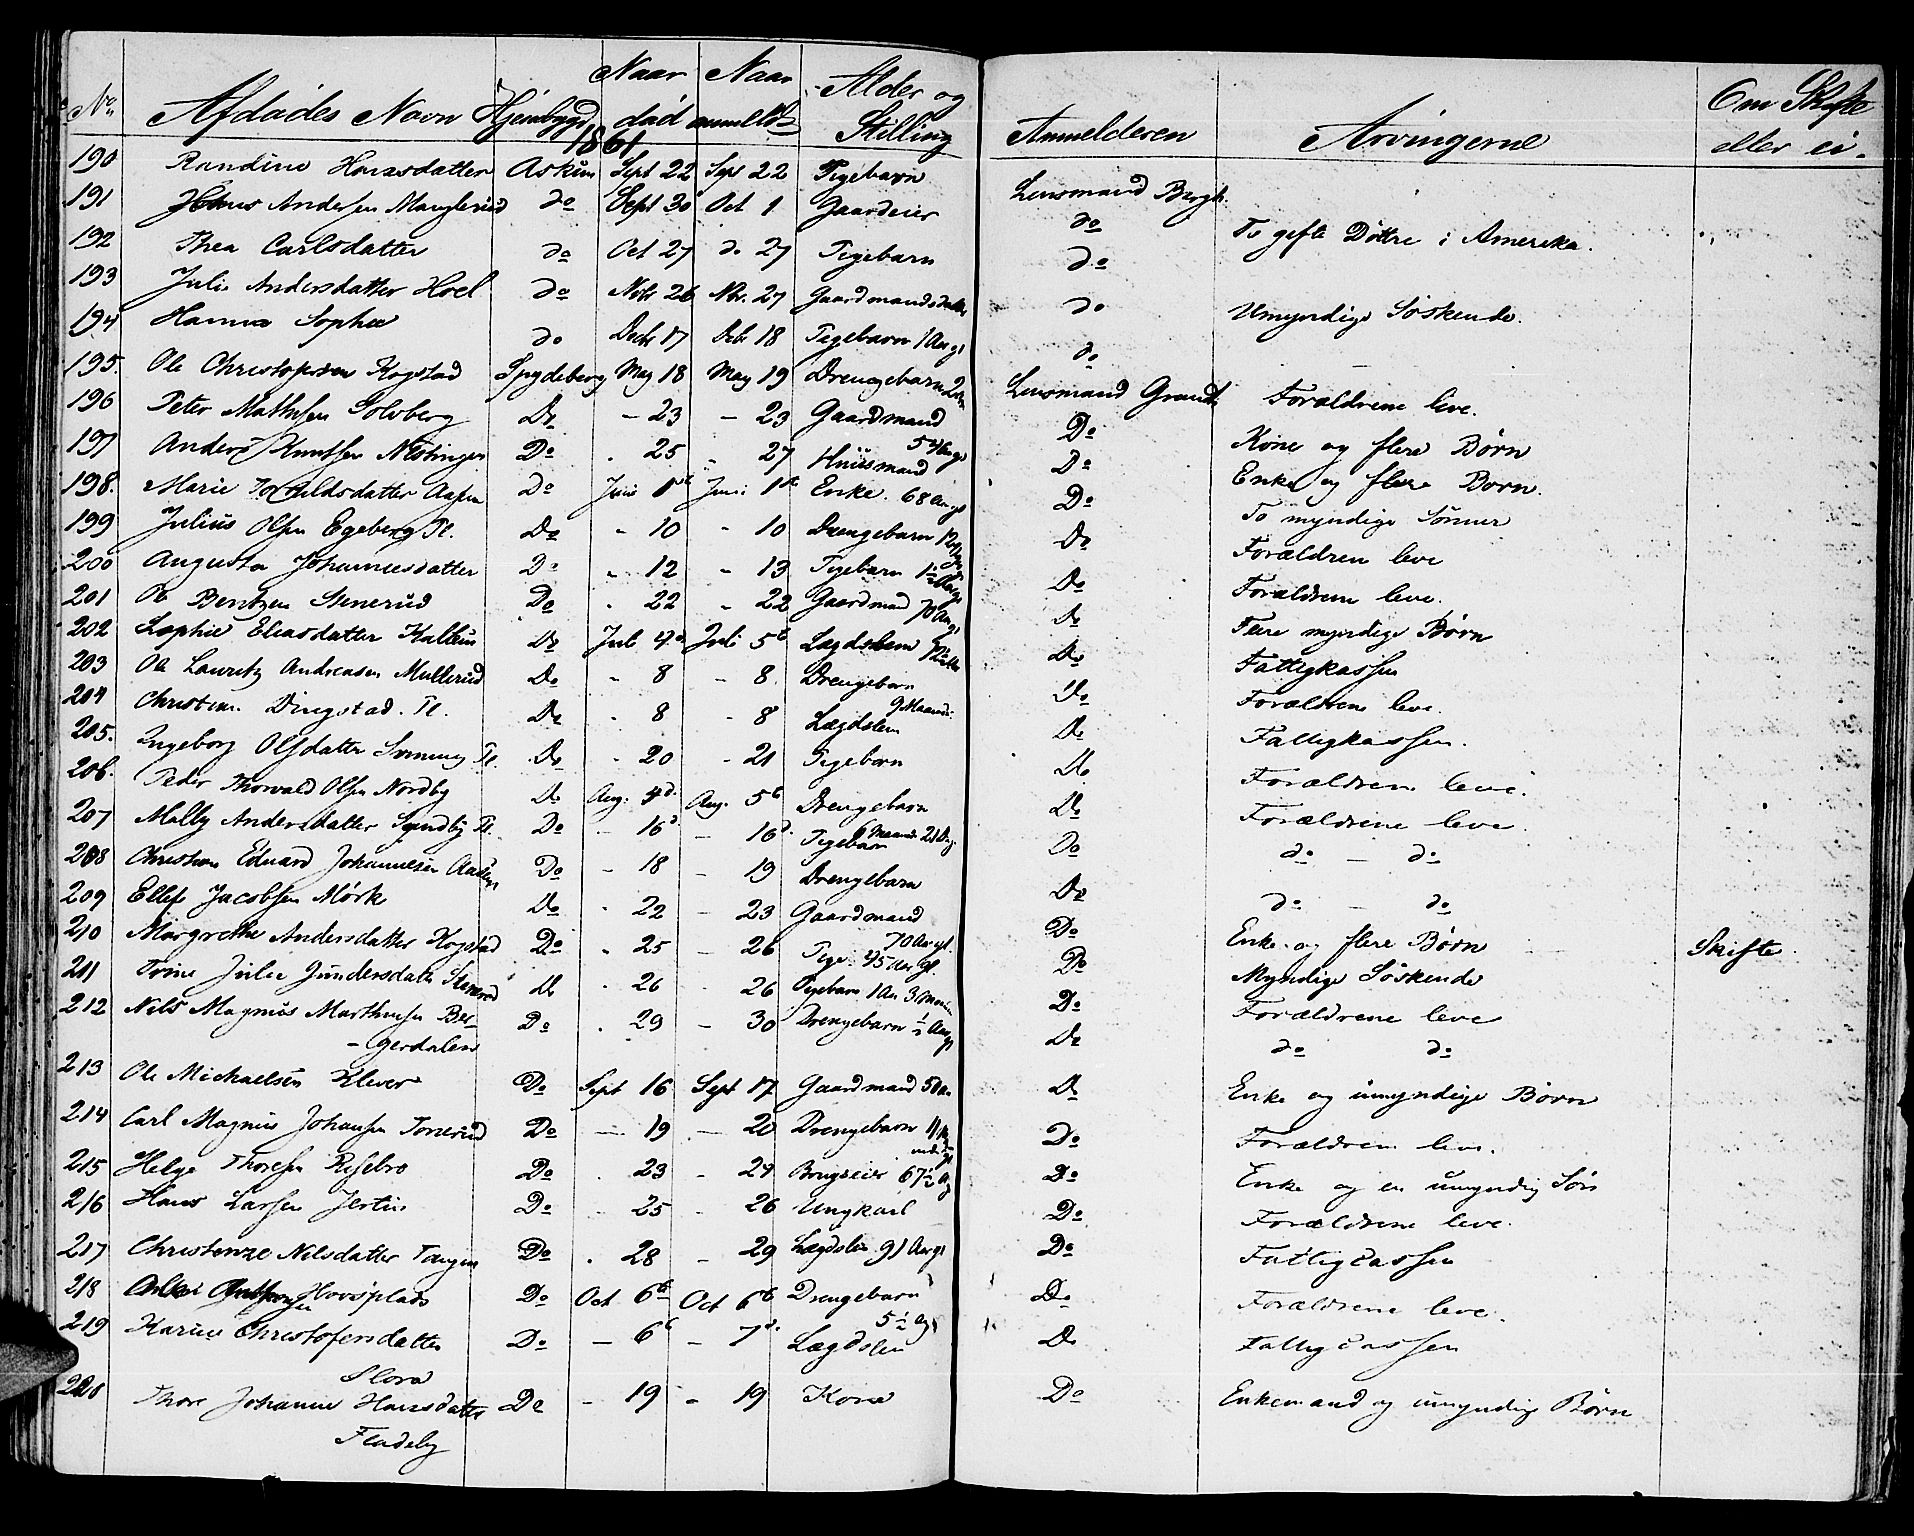 No. Afdødes Navn Hjembygd Naar død Naar anmeldt Alder og Stilling Anmelderen Arvingerne Om Skifte eller ei.
1861
190 Randine Hansdatter Askim Sept 22 Sept 22 Pigebarn Lensmand Bergh.
191 Hans Andersen Manglerud do Sept 30 Oct 1 Gaardeier do To gifte Døttre i Amerika.
192 Thea Carlsdatter do Oct 27 do 27 Pigebarn do
193 Julie Andersdatter Hoel do Novbr 26 Nov. 27 Gaardmandsdatter do Umyndige Søskende.
194 Hanna Sophie do Decbr 17 Decbr 18 Pigebarn 1 Aar gl do —
195. Ole Christophersen Kogstad Spydeberg May 18 May 19 Drengebarn Lensmand Grandt Forældrene leve.
196 Peter Mathisen Solberg Do — 23 — 23 Gaardmand Do Kone og flere Børn
197 Anders Knutsen Do . 25 . 27 54 Aar gl Huusmand Do Enke og flere Børn.
198. Marie Do Juni 1ste Juni 1ste Enke. 68 Aar gl Do To myndige Sønner
199 Julius Olsen Egeberg Pl. Do " 10 " 10 Drengebarn Do Forældren leve
200 Augusta Johannesdatter Do " 12 " 13 Pigebarn 1½ Aar gl Do Forældrene leve.
201 Ole Bentzen Stenerud Do " 22 " 22 Gaardmand 70 Aar gl Do Flere myndige Børn
202 Sophie Eliasdatter Do Juli 4de Juli 5te Lægdslem Do Fattigkassen
203 Ole Lauritz Andreasen Mullerud Do " 8 " 8. Drengebarn 9 Maaned. Do Forældrene leve.
204 Christian Dingstad. Pl. Do " 8 " 8 Lægdslem Do Fattigkassen.
205. Ingeborg Olsdatter Pl. Do " 20 " 21 Pigebarn Do Forældrene leve.
206. Peder Thorvald Olsen Nordby Do Aug. 4de Aug. 5te Drengebarn Do Forældrene leve.
207 Mally Andersdatter Sundby Pl. Do — 16d — 16d. 6 Maaned 21 Dag Pigebarn Do do — do
208 Christian Eduard Johannesen Do " 18 — 19 Drengebarn Do do — do
209 Ellef Jacobsen Mørk Do " 22 — 23 Gaardmand 70 Aar gl. Do Enke og flere Børn Skifte
210 Margrethe Andersdatter Kogstad Do " 25 " 26 Pige. 45 Aar gl. Do Myndige Søskende
211 Trine Julie Gundersdatter Stenerud Do " 26 " 26 Pigebarn 1 Aar 3 Do Forældrene leve
212 Nils Magnus Marthinsen Ber-
-gerdalen Do . 29 — 30 Drengebarn ½ Aar gl Do do do
213 Ole Michaelsen Klever Do Sept 16 Sept 17 Gaardmand Do Enke og umyndige Børn
214 Carl Magnus Johansen Tonerud Do — 19 — 20 Drengebarn 11 Do Forældren leve.
215 Helge Thoresen Risebro Do . 23 " 24 Brugseier 67½ Do Enke og en umyndig Søn
216 Hans Larsen Do — 25 — 26 Ungkarl Do Forældrene leve.
217 Christense Nilsdatter Tangen Do . 28 — 29 Lægdslem 91 Aar gl Do Fattigcassen
218 Hovsplads Do Oct 6te Oct 6te Drengebarn 5½ Do Forældrene leve.
219 Karine Christofersdatter
Slora Do — 6te — 7de. Lægdslem Do Fattigcassen
220 Thore Johanne Hansdatter
Fladeby Do — 19 " 19 Kone Do Enkemand og umyndige Børn